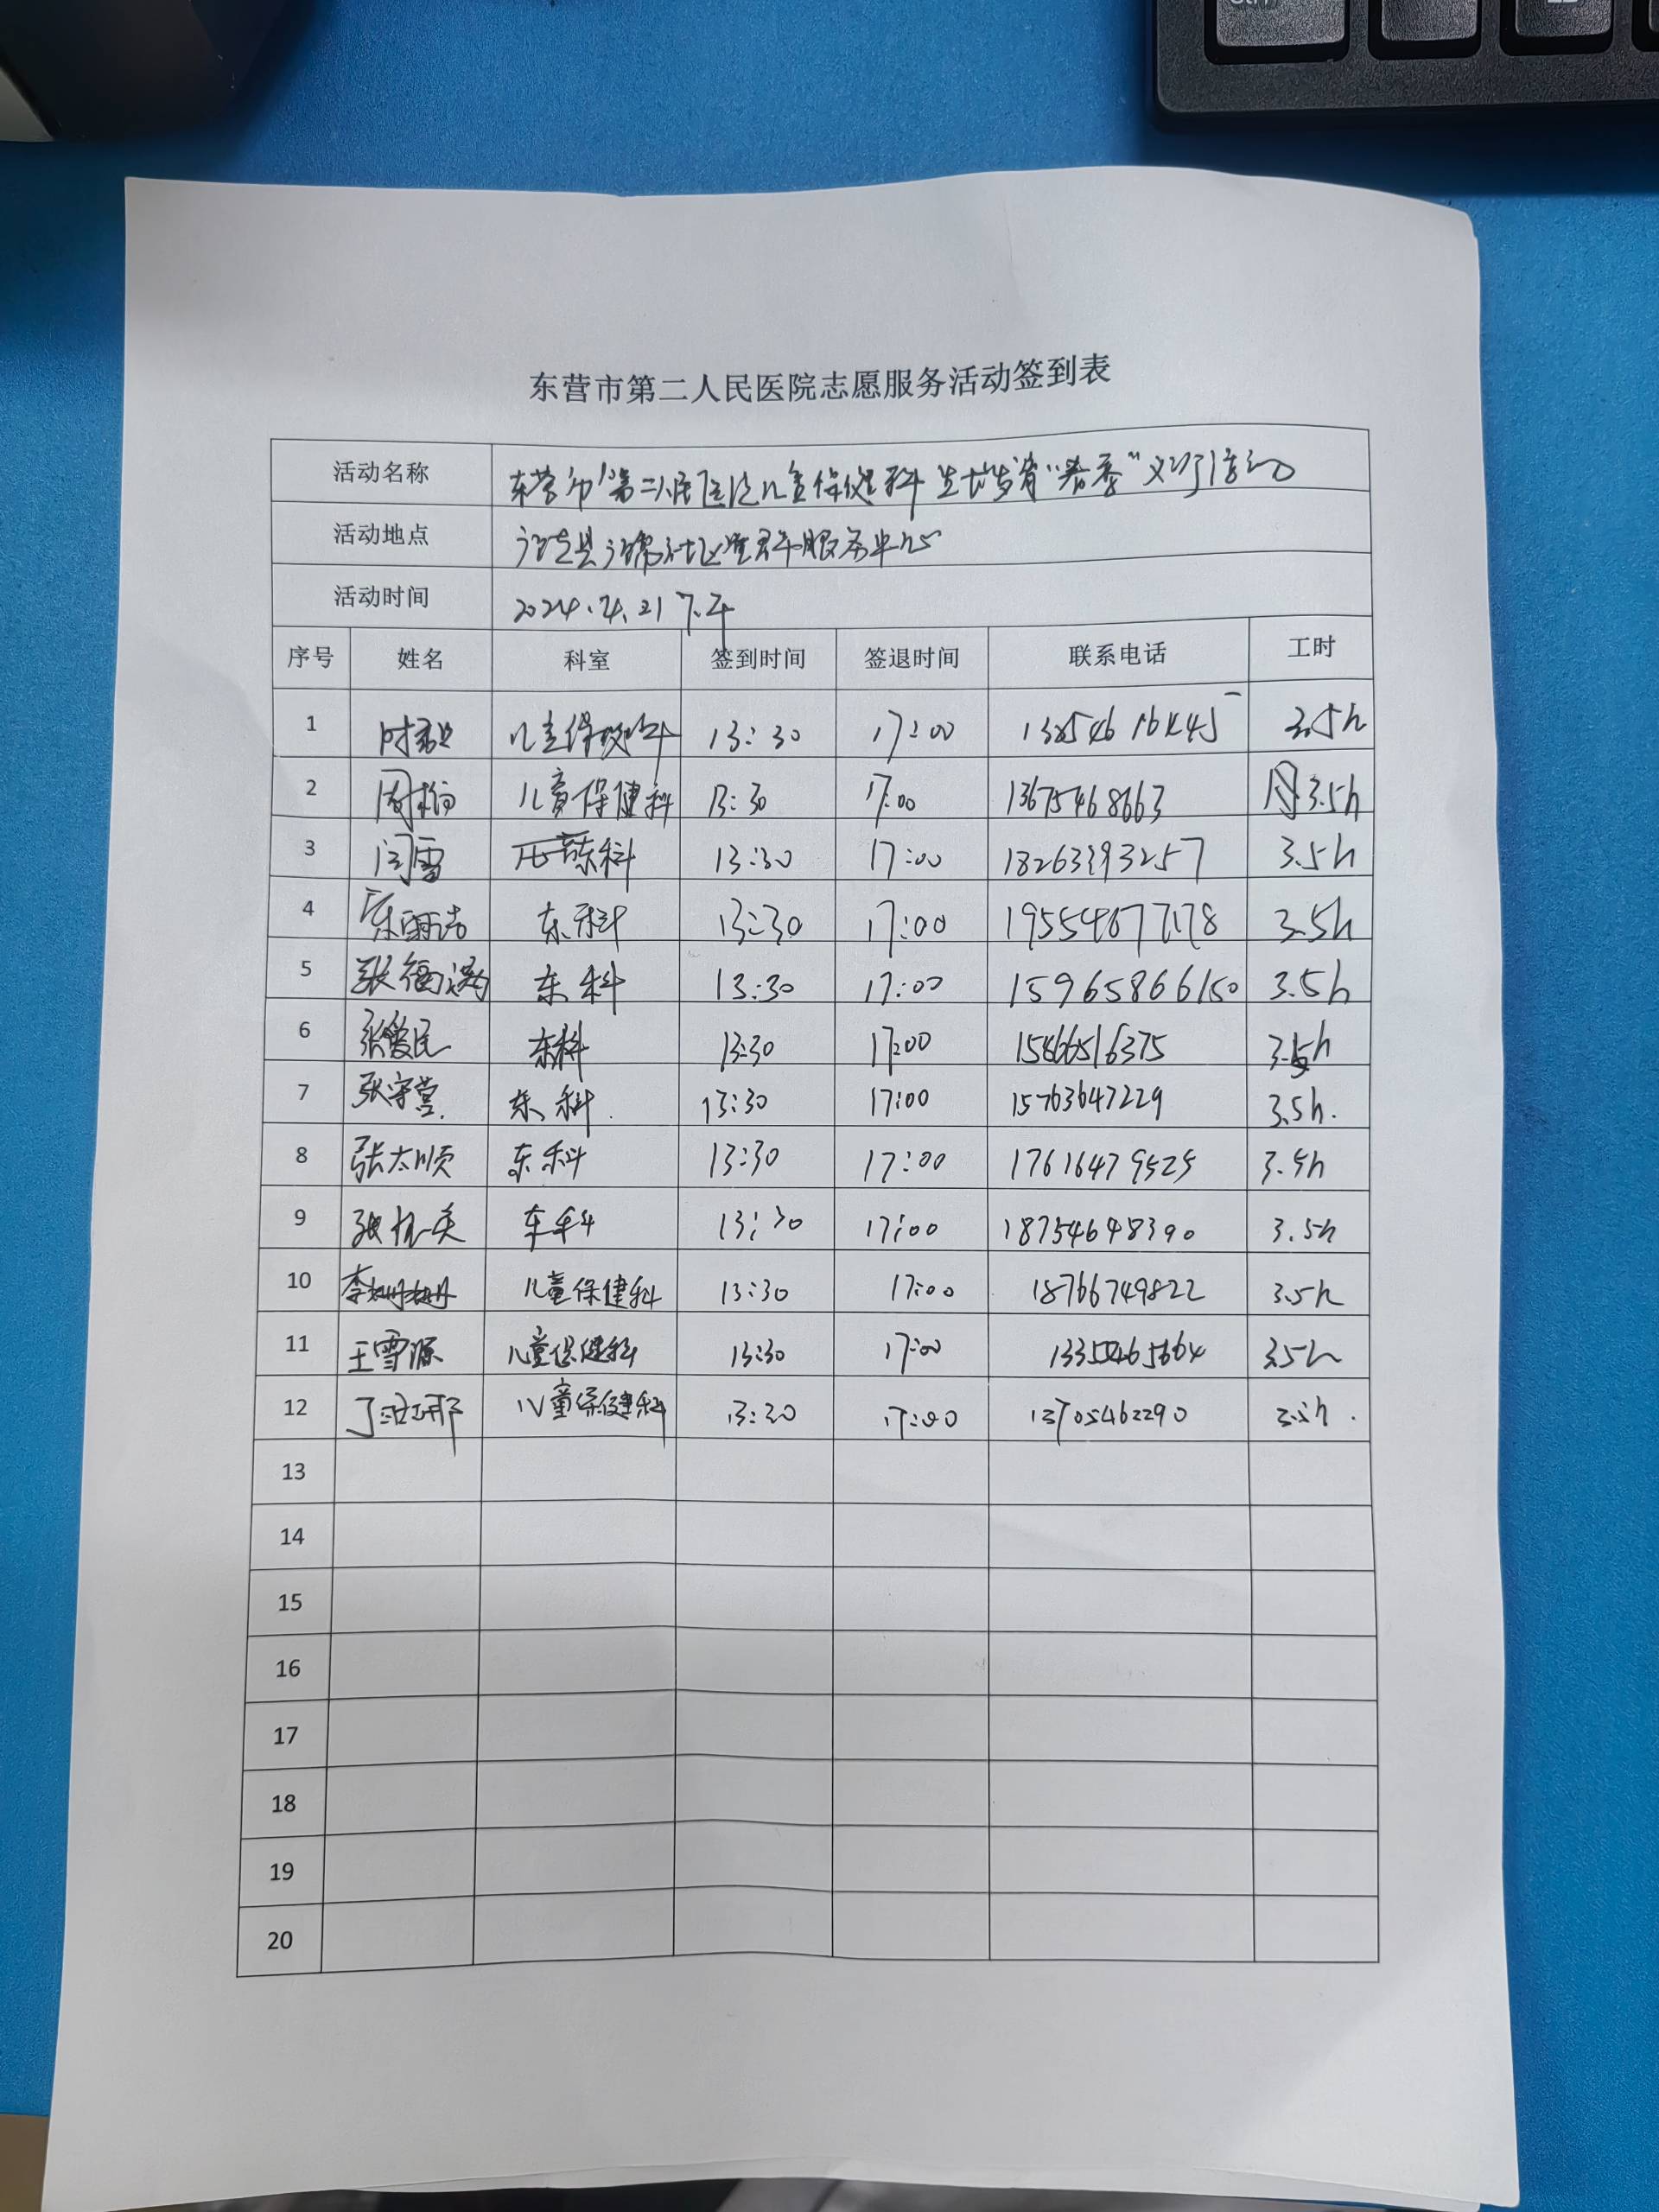 东营市第二人民医院志愿服务活动签到表
活动名称 东营市第二人民医院儿童保健科 "春季" 义诊活动
活动地点 服务中心
活动时间 2024.4.21 下午
序号 姓名 科室 签到时间 签退时间 联系电话 工时
1 儿童保健科 13:30 17:00 3.5h
2 儿童保健科 13:30 17:00 13675468663 3.5h
3 闫雪 13:30 17:00 3.5h
4 东科 13:30 17:00 3.5h
5 东科 13:30 17:00 15965866150 3.5h
6 张爱民 东科 13:30 17:00 15866516375 3.5h
7 张守营 东科 13:30 17:00 15763647229 3.5h.
8 张太顺 东科 13:30 17:00 17616479525 3.5h
9 东科 13:30 17:00 18754648390 3.5h
10 李姗姗 儿童保健科 13:30 17:00 18766749822 3.5h
11 王雪源 儿童保健科 13:30 17:00 3.5h
12 儿童保健科 13:30 17:00 13705462290 3.5h.
13
14
15
16
17
18
19
20